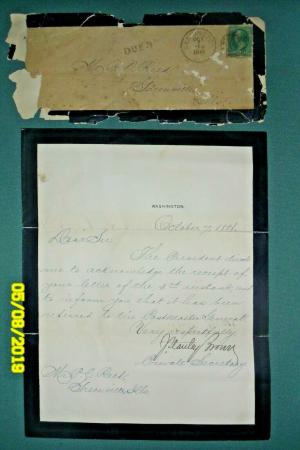 DUE 3
OCT
Greenville
WASHINGTON.
October 7, 1881.
Dear Sir
The President directs
me to acknowledge the receipt of
your letter of the 3rd instant, and
to inform you that it has been
referred to the Postmaster General.
Very respectfully
J. Stanley Brown
Private Secretary
Greenville, Ills.
05/08/2019